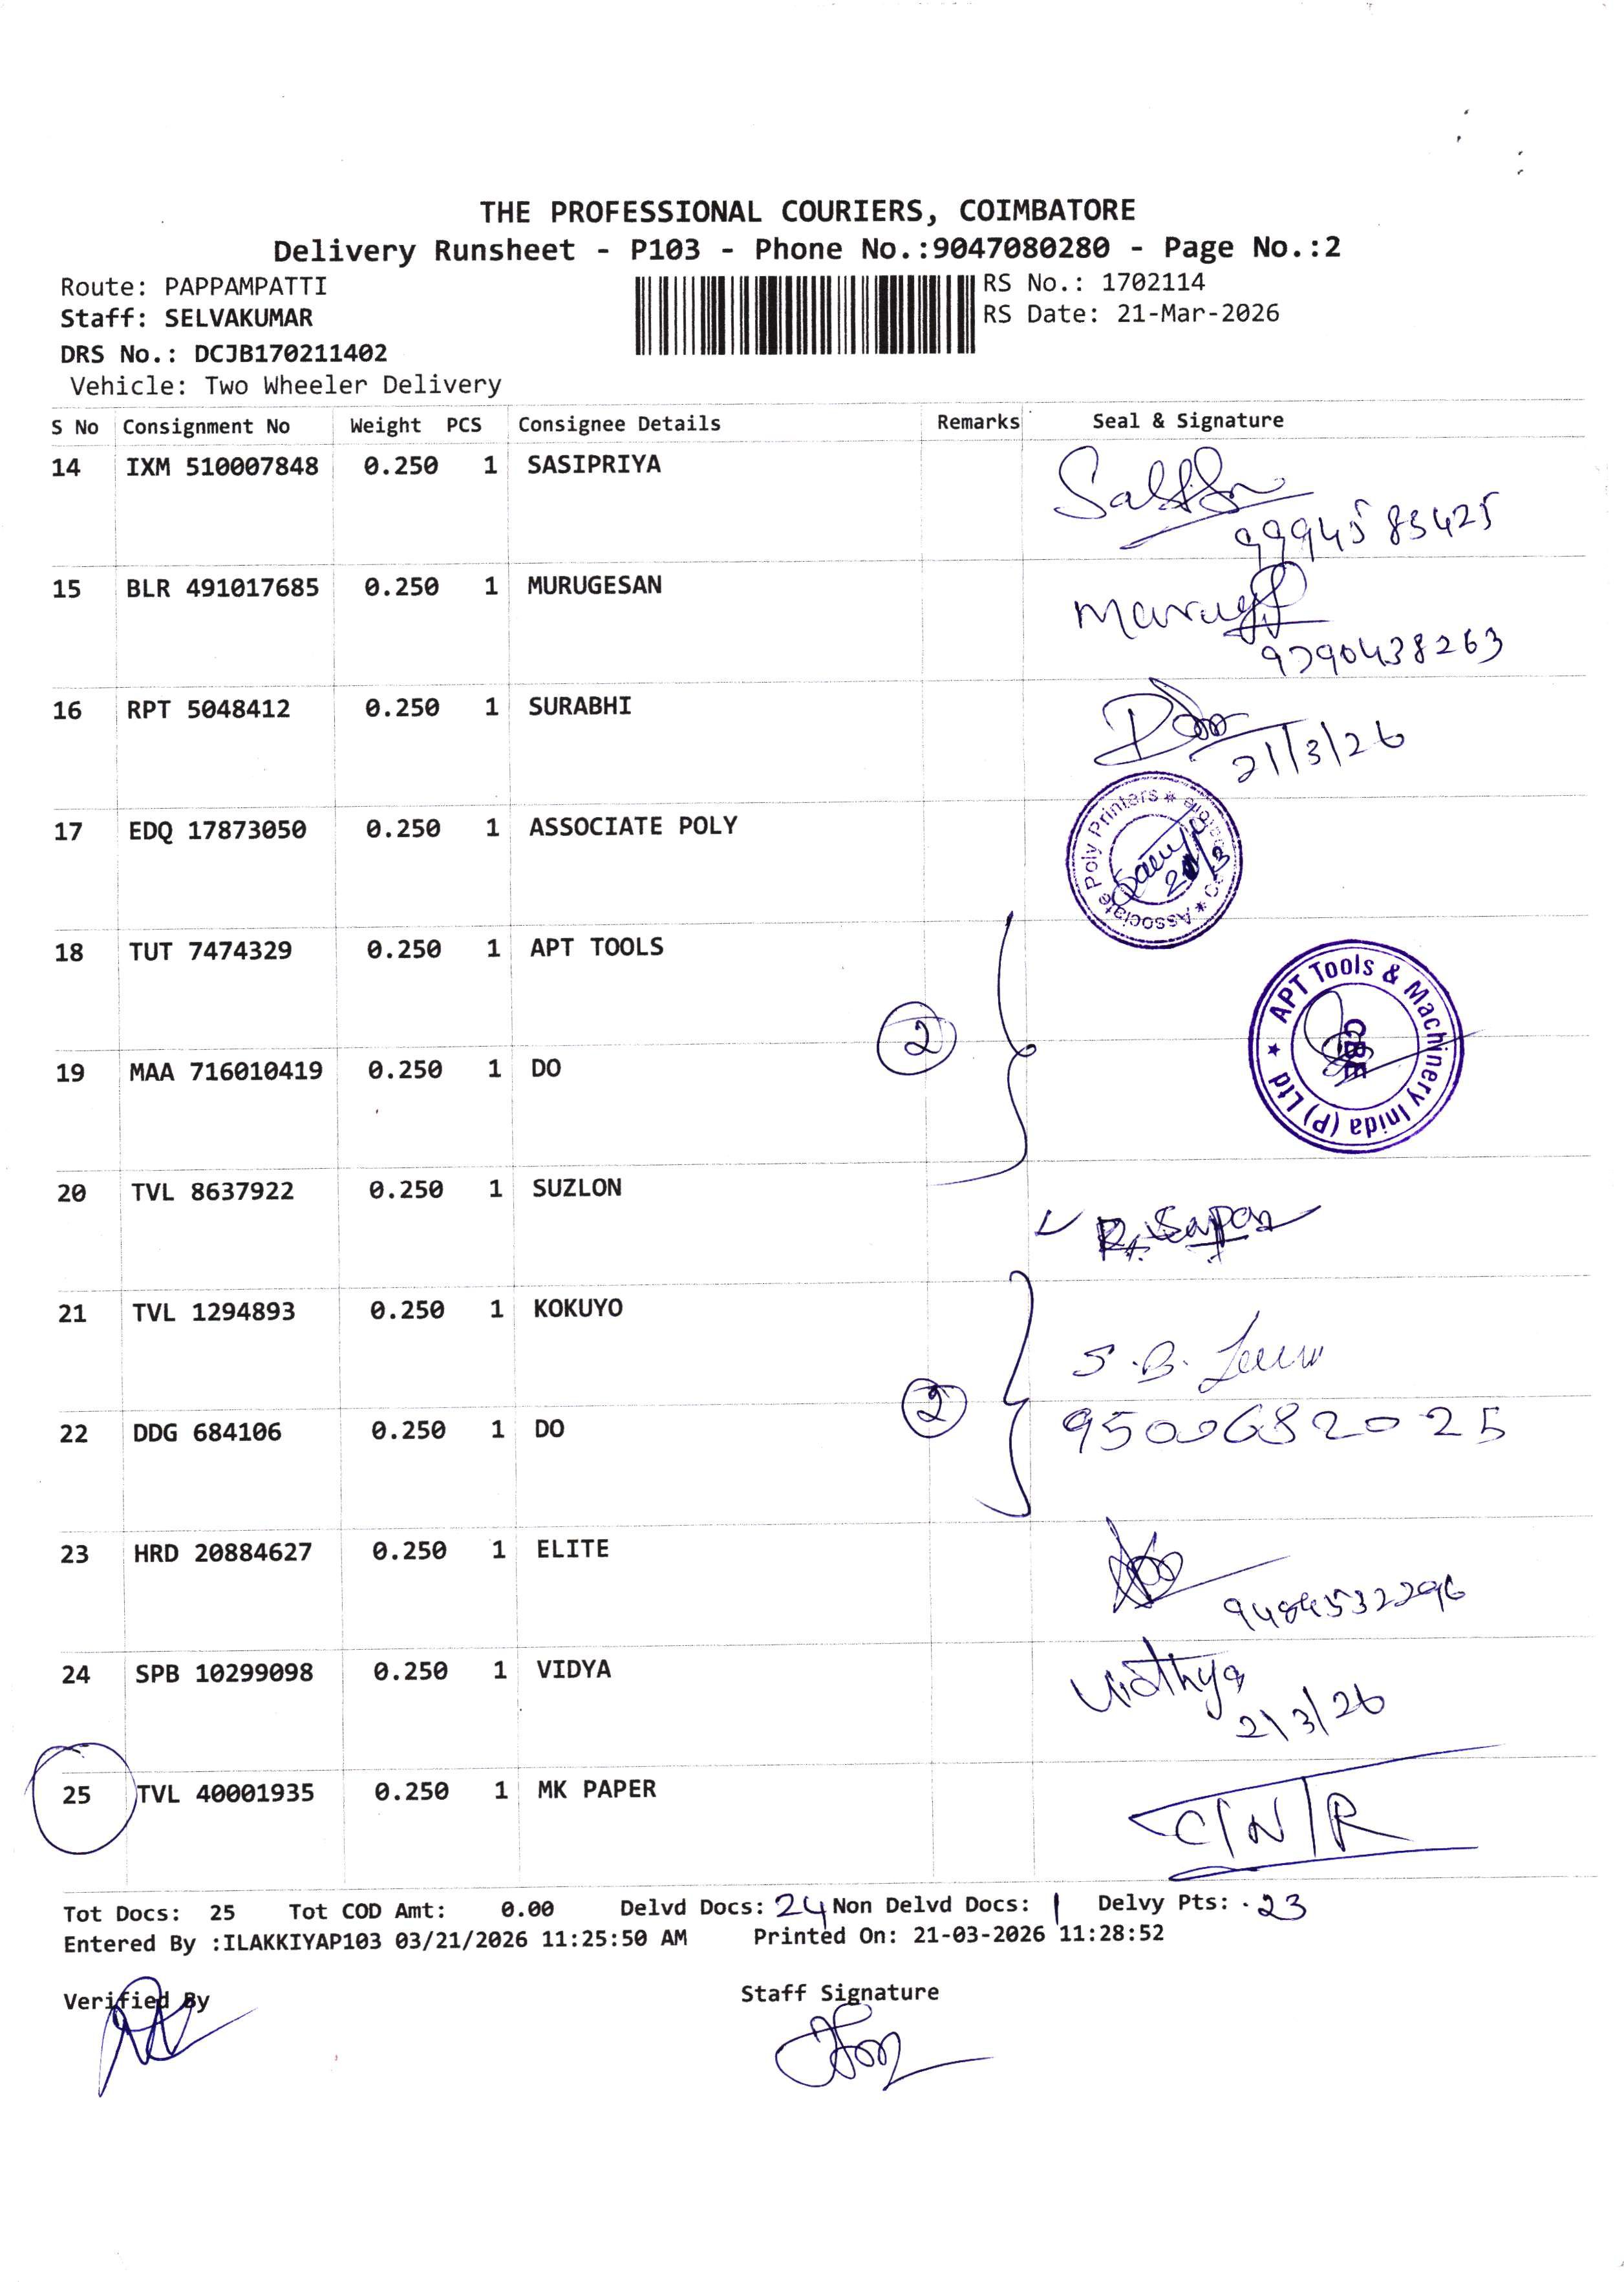 THE PROFESSIONAL COURIERS, COIMBATORE
Delivery Runsheet - P103 - Phone No.:9047080280 - Page No.:2
Route: PAPPAMPATTI
RS No.: 1702114
Staff: SELVAKUMAR
RS Date: 21-Mar-2026
DRS No.: DCJB170211402
Vehicle: Two Wheeler Delivery
S No Consignment No Weight PCS Consignee Details Remarks Seal & Signature
14 IXM 510007848 0.250 1 SASIPRIYA
9994583425
15 BLR 491017685 0.250 1 MURUGESAN
9790438263
16 RPT 5048412 0.250 1 SURABHI
21/3/26
17 EDQ 17873050 0.250 1 ASSOCIATE POLY
Associate Poly Printers * Coimbatore *
21/3
18 TUT 7474329 0.250 1 APT TOOLS
2
APT Tools & Machinery Inida (P) Ltd ★
CBE
19 MAA 716010419 0.250 1 DO
20 TVL 8637922 0.250 1 SUZLON
21 TVL 1294893 0.250 1 KOKUYO
S.B.
22 DDG 684106 0.250 1 DO
2
9500682025
23 HRD 20884627 0.250 1 ELITE
24 SPB 10299098 0.250 1 VIDYA
Vidhya
21/3/26
25 TVL 40001935 0.250 1 MK PAPER
C/N/R
Tot Docs: 25 Tot COD Amt: 0.00 Delvd Docs: 24 Non Delvd Docs: 1 Delvy Pts: 23
Entered By :ILAKKIYAP103 03/21/2026 11:25:50 AM Printed On: 21-03-2026 11:28:52
Verified By
Staff Signature